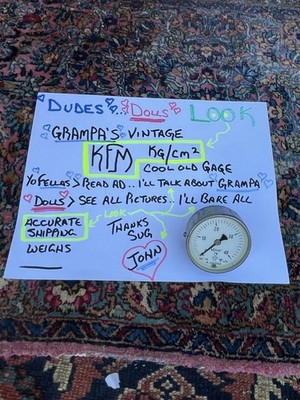 DUDES...DOLLS LOOK
GRAMPA'S VINTAGE
KFM Kg/cm2
COOL OLD GAGE
YO FELLAS > READ AD.. I'LL TALK ABOUT GRAMPA
DOLLS > SEE ALL PICTURES.. I'LL BARE ALL
ACCURATE LOOK
SHIPPING THANKS
WEIGHS SUG
JOHN